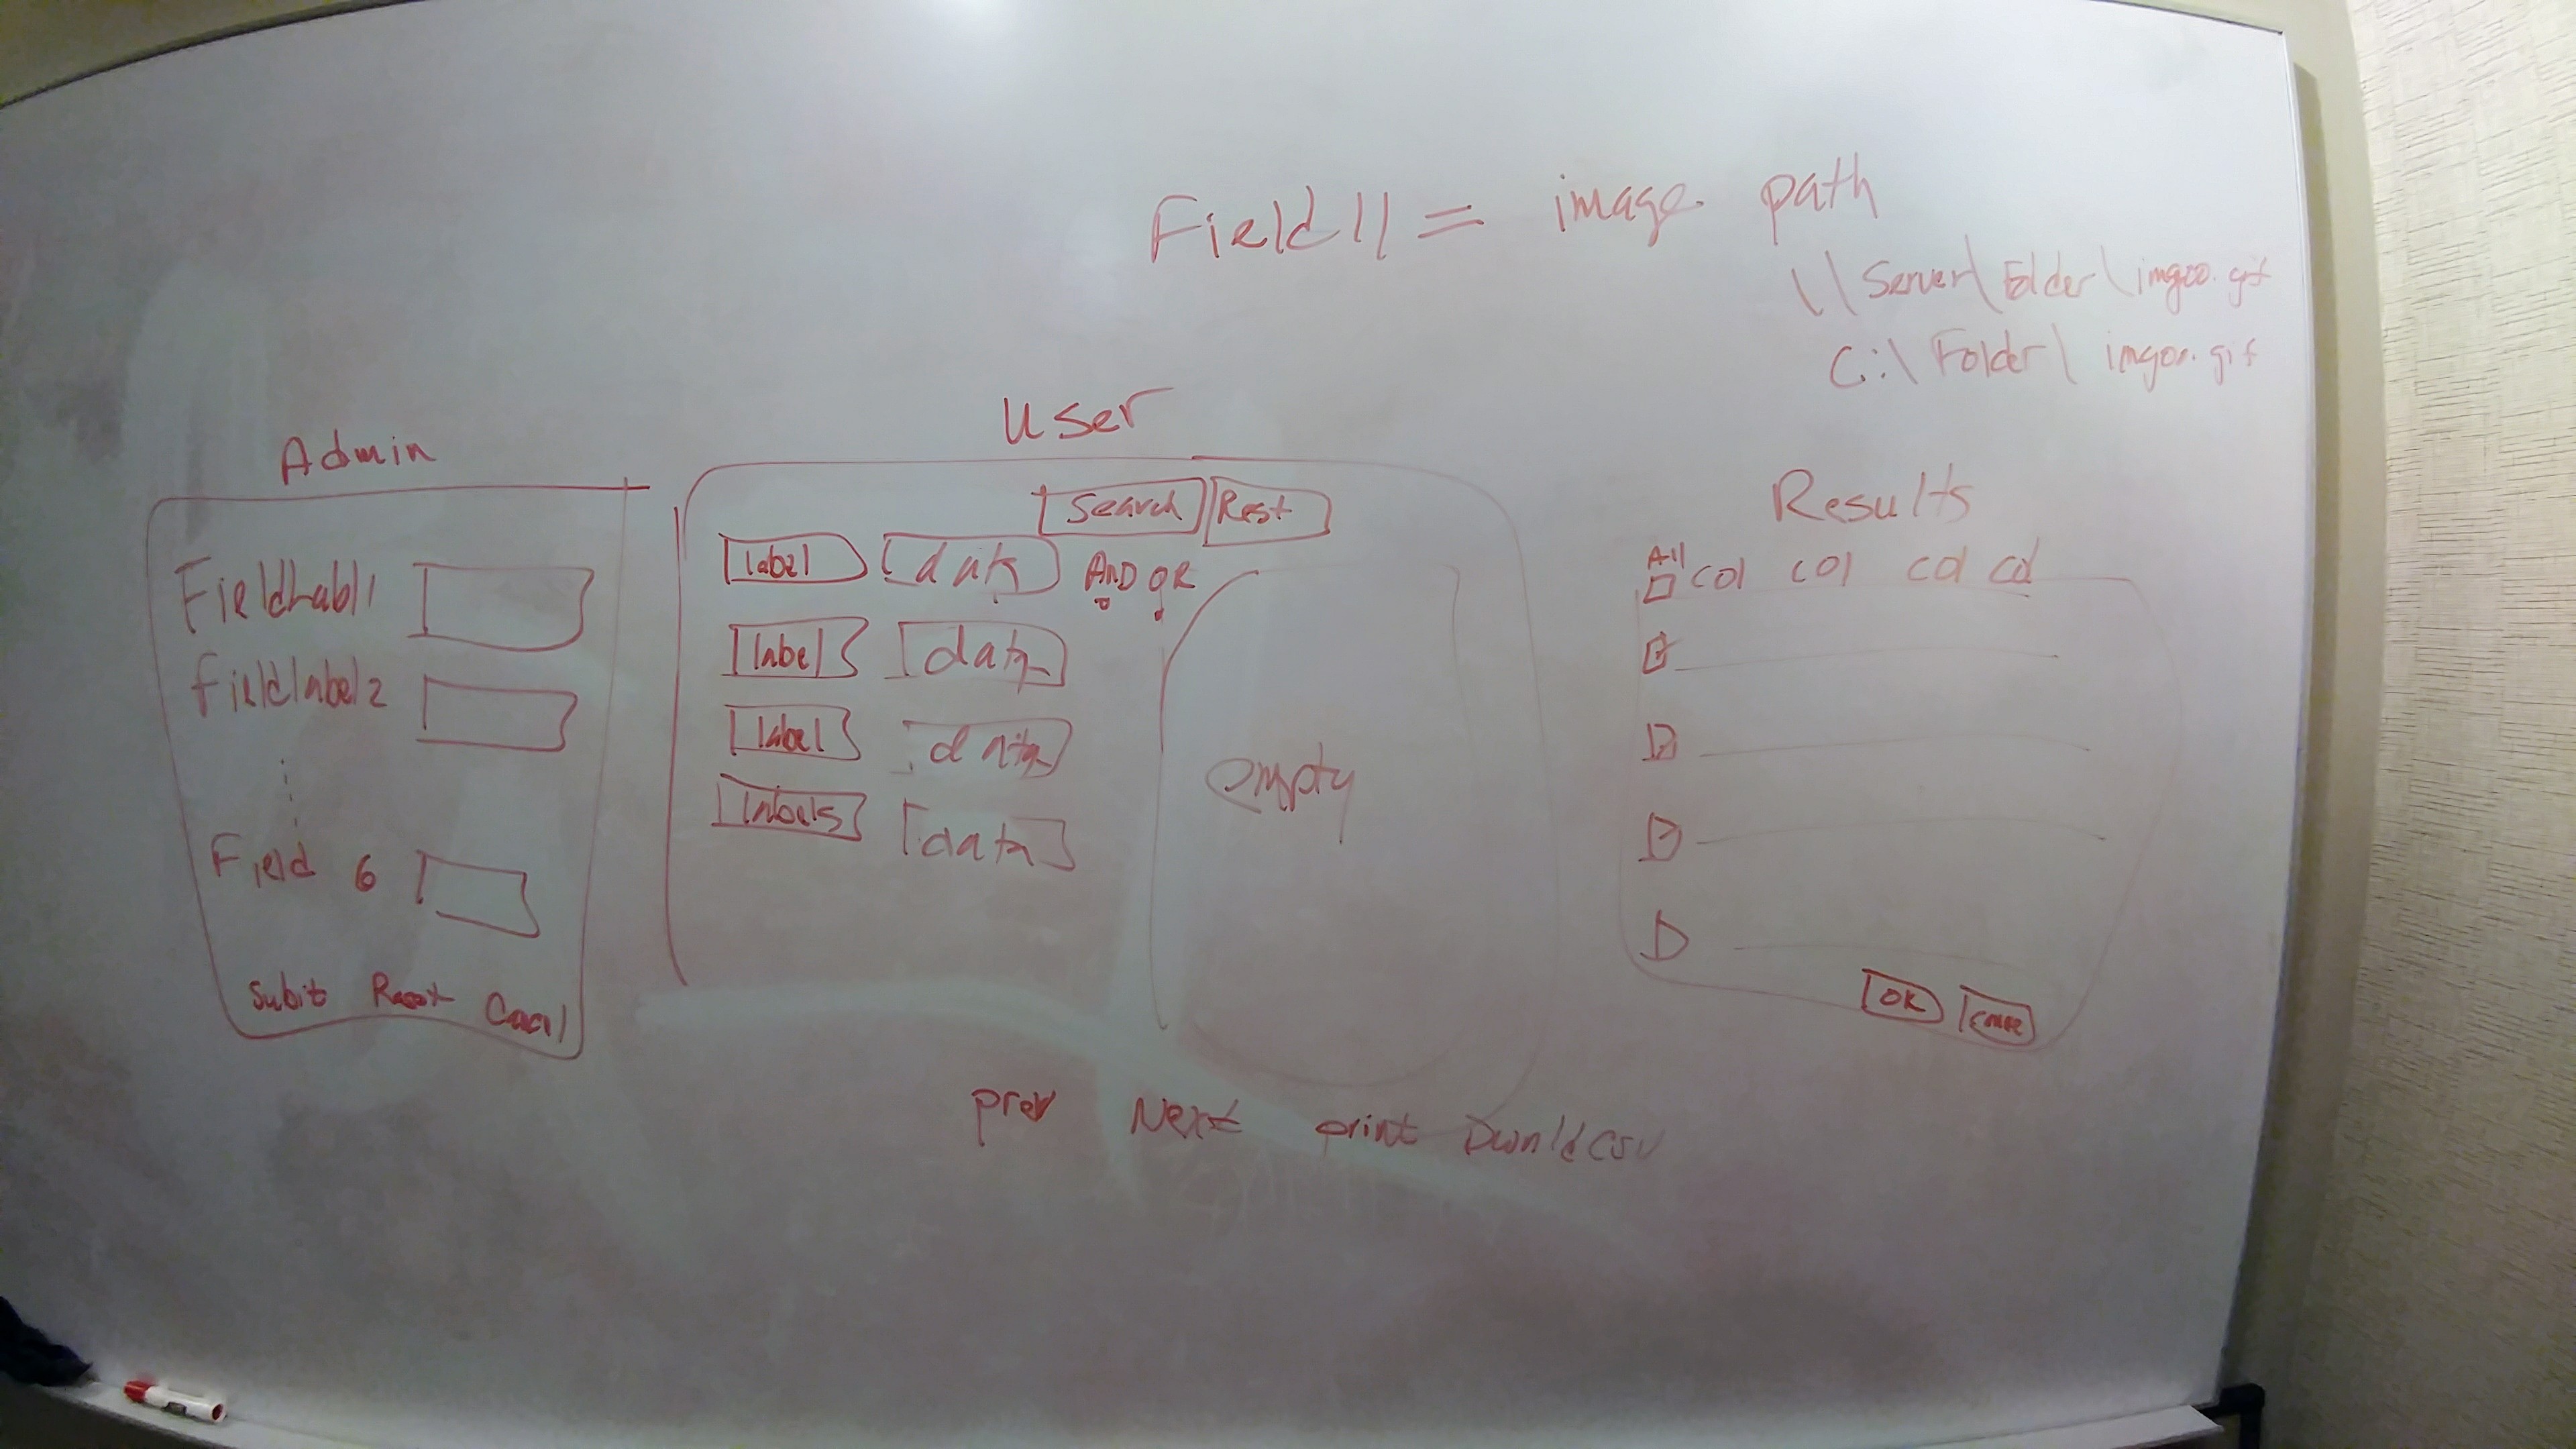 Field11 = image path
\\Server\Folder\img00.gif
C:\Folder\ img00.gif
Admin
FieldLabl1
fieldlabel2
Field 6
Subit Reset Cancl
User
Search Rest
label data AND OR
label data
label data
labels data
empty
prev Next print Dwnld CSV
Results
All
col col col col
OK